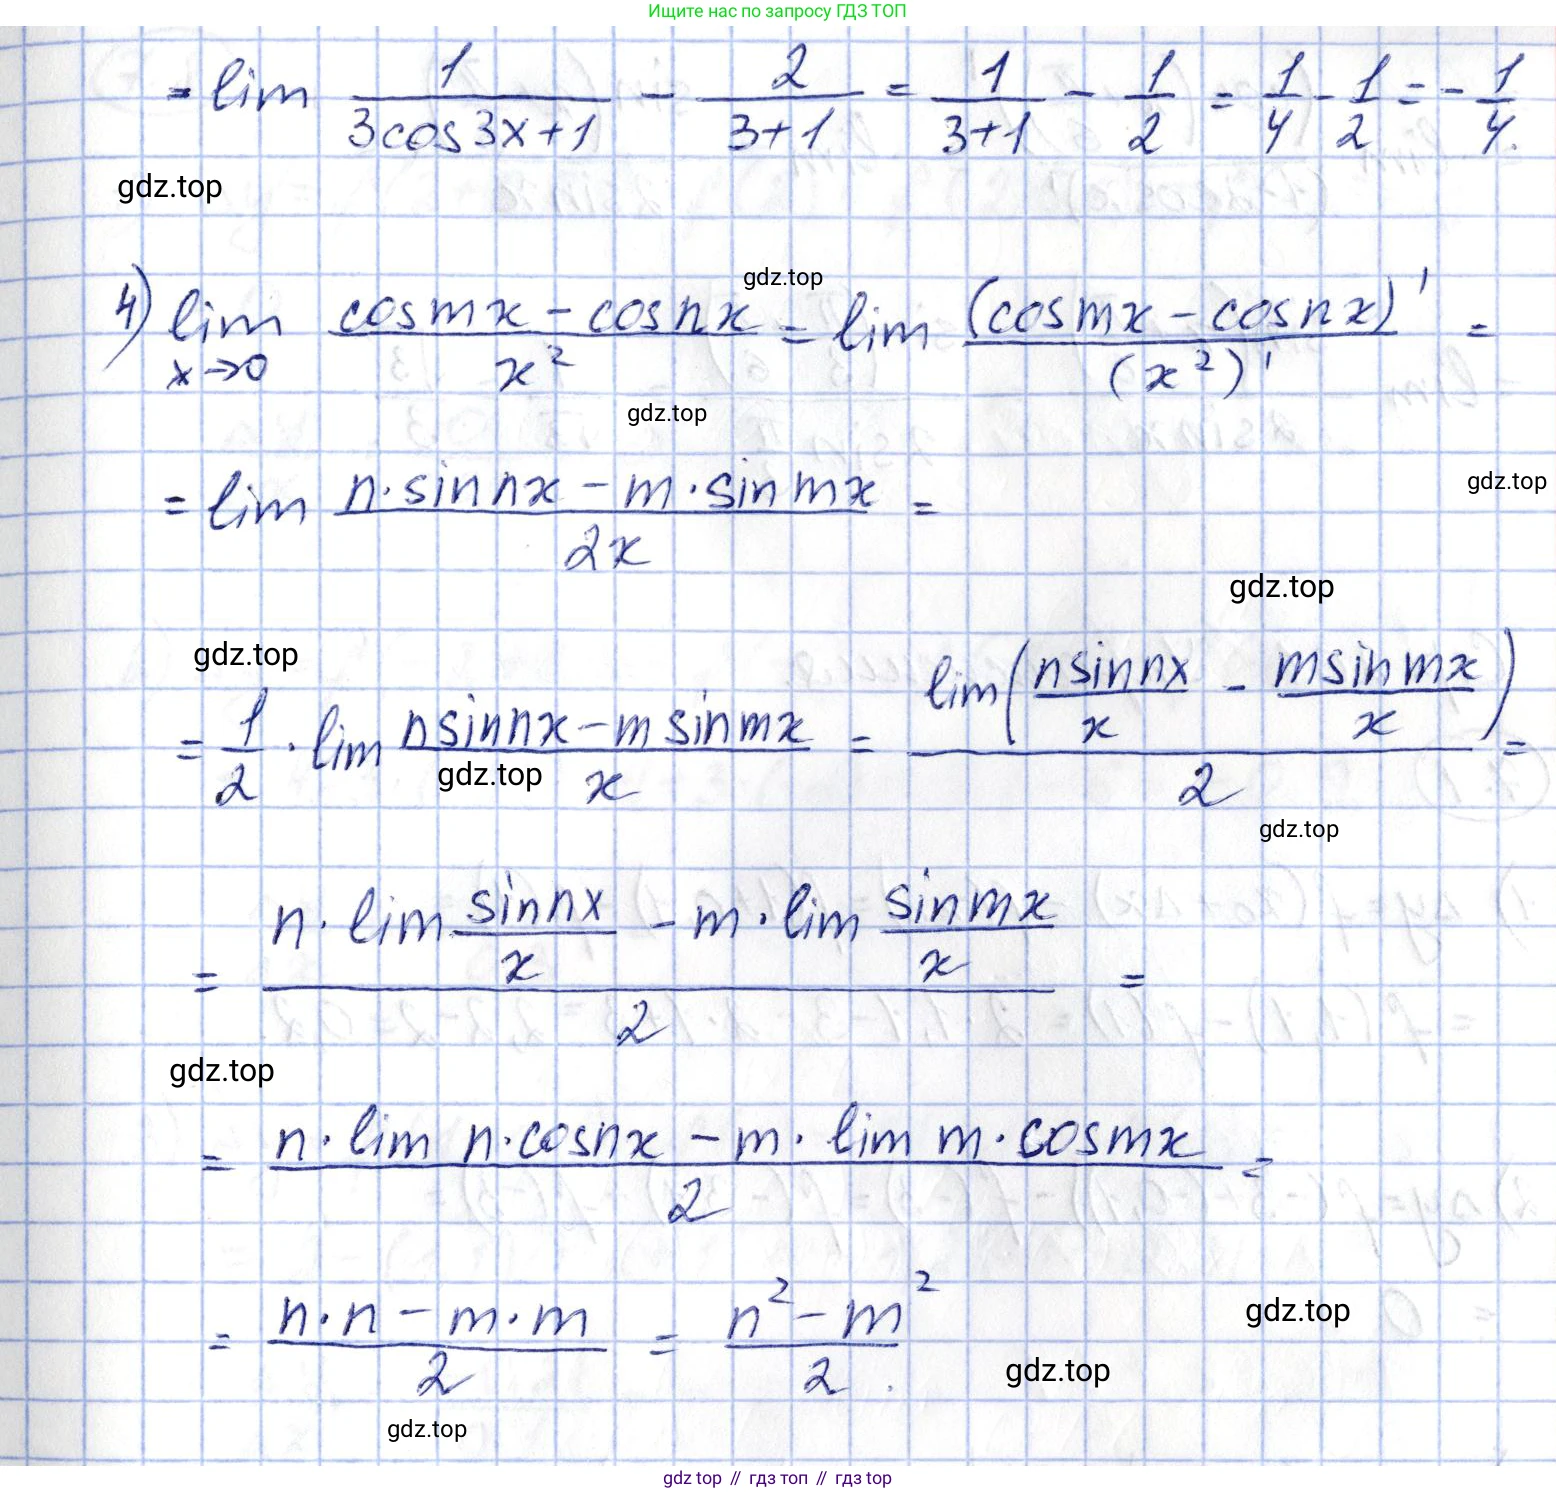 Ищите нас по запросу ГДЗ ТОП
= lim 1/(3cos3x+1) - 2/(3+1) = 1/(3+1) - 1/2 = 1/4 - 1/2 = -1/4.
gdz.top
gdz.top
4) lim x→0 (cosmx - cosnx)/x² = lim (cosmx - cosnx)'/(x²)' =
gdz.top
gdz.top
= lim (n·sinnx - m·sinmx)/2x =
gdz.top
gdz.top
= 1/2 · lim (nsinnx - msinmx)/x = lim(nsinnx/x - msinmx/x)/2 =
gdz.top
gdz.top
= (n·lim sinnx/x - m·lim sinmx/x)/2 =
gdz.top
= (n·lim n·cosnx - m·lim m·cosmx)/2 =
= (n·n - m·m)/2 = (n² - m²)/2.
gdz.top
gdz.top
gdz.top
gdz top // гдз топ // гдз top